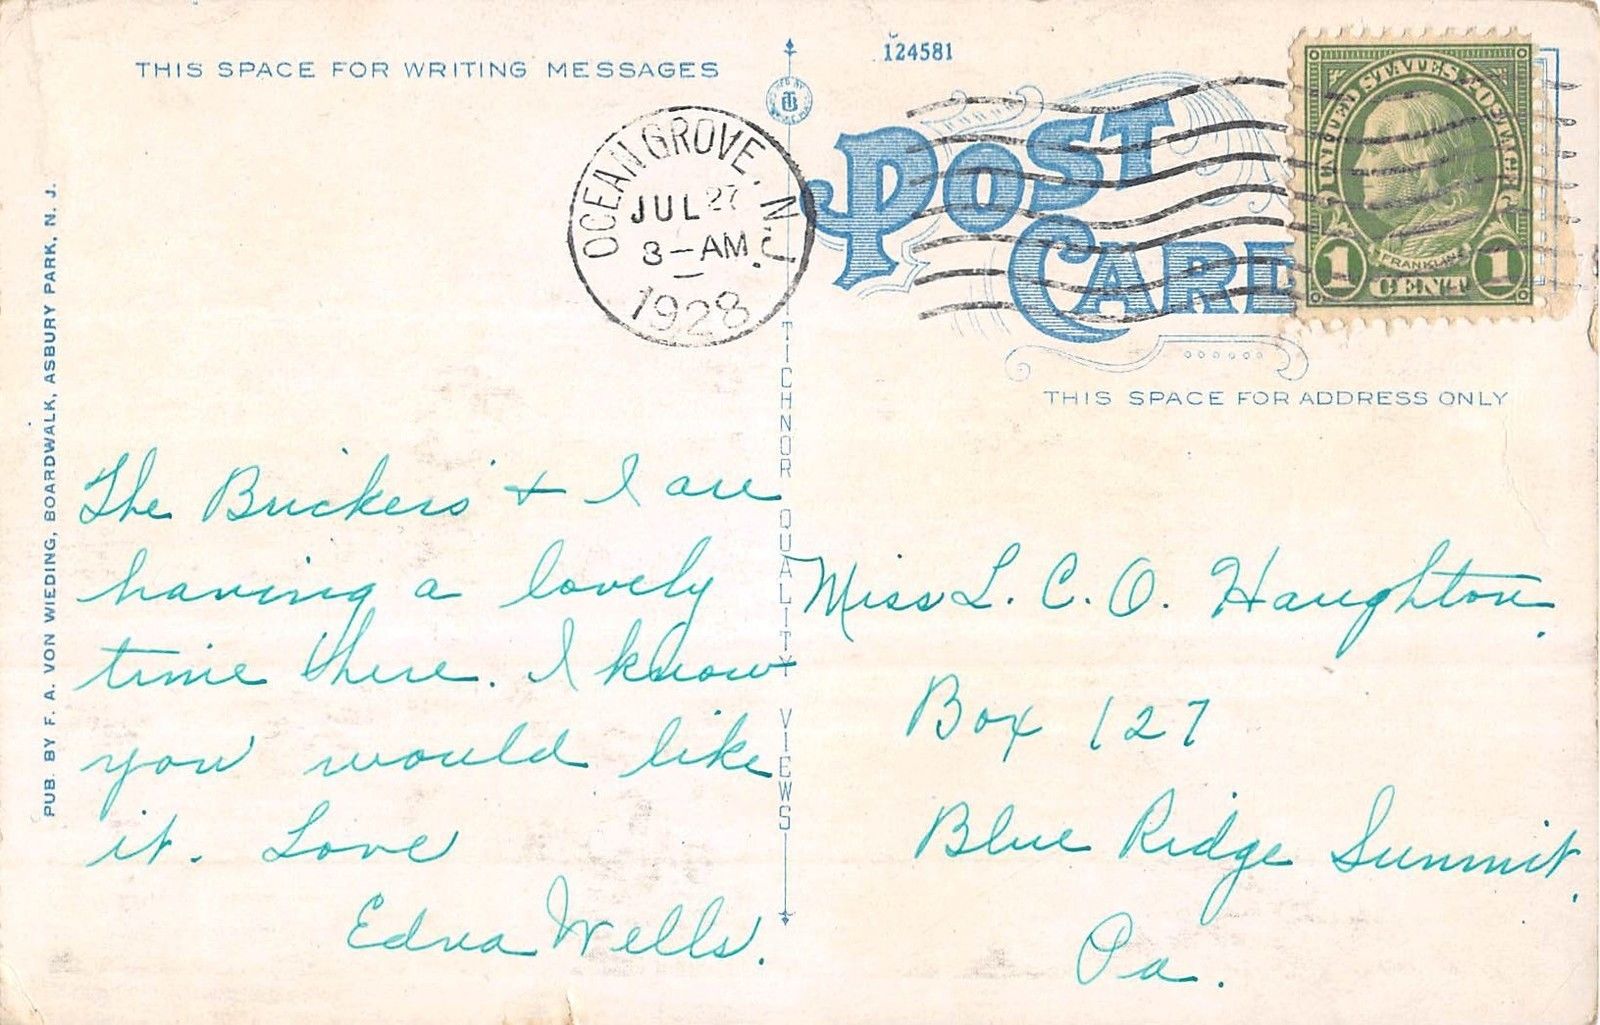 THIS SPACE FOR WRITING MESSAGES
124581
OCEAN GROVE, N.J.
JUL 27
3-AM
1928
POST CARD
UNITED STATES POSTAGE
FRANKLIN
1 CENT 1
THIS SPACE FOR ADDRESS ONLY
PUB. BY F. A. VON WIEDING, BOARDWALK, ASBURY PARK, N. J.
TICHNOR QUALITY VIEWS
The Brickers + I are
having a lovely
time here. I know
you would like
it. Love
Edna Wells.
Miss L. C. O. Haughton.
Box 127
Blue Ridge Summit,
Pa.